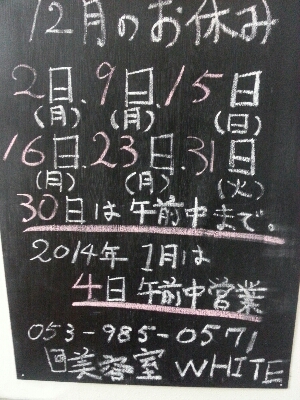 12月のお休み
2日、9日、15日
(月) (月) (日)
16日、23日、31日
(月) (月) (火)
30日は午前中まで。
2014年 1月は
4日 午前中営業
053-985-0571
美容室 WHITE